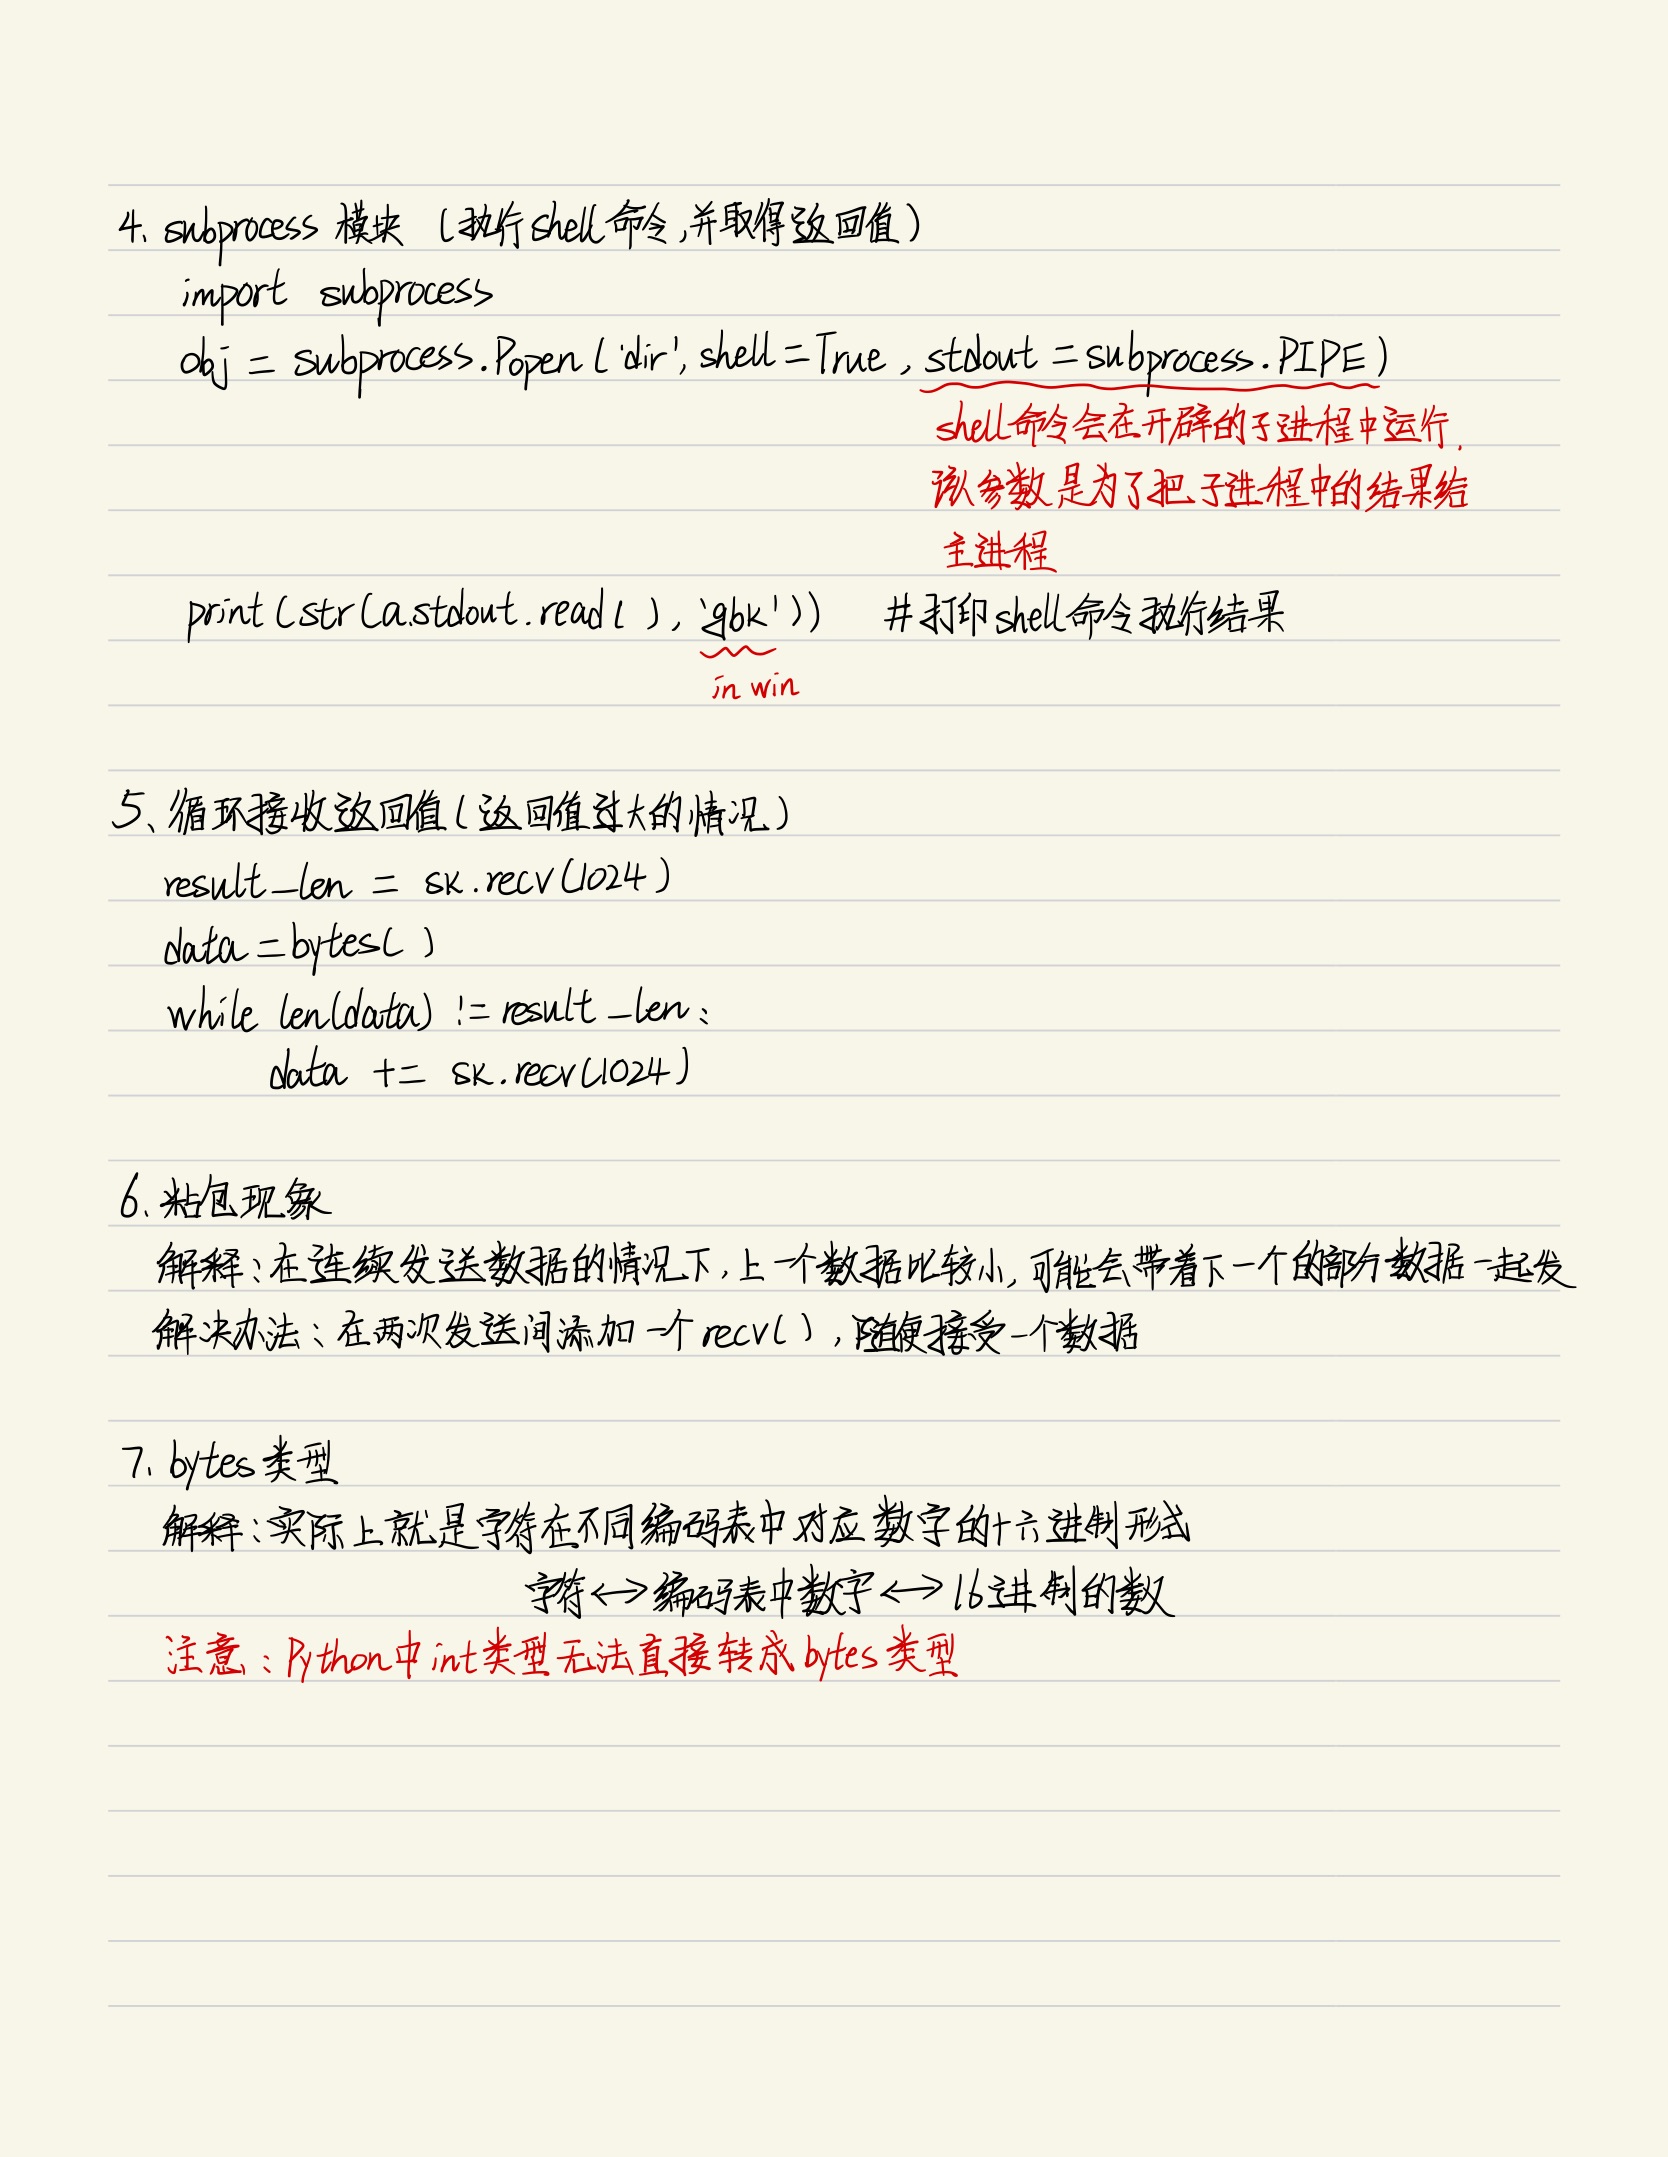 4. subprocess 模块 (执行shell命令,并取得返回值)
import subprocess
obj = subprocess.Popen('dir', shell=True, stdout=subprocess.PIPE)
shell命令会在开辟的子进程中运行,
该参数是为了把子进程中的结果给
主进程
print(str(a.stdout.read(), 'gbk')) #打印shell命令执行结果
in win
5、循环接收返回值(返回值过大的情况)
result_len = sk.recv(1024)
data=bytes()
while len(data) != result_len:
data += sk.recv(1024)
6. 粘包现象
解释:在连续发送数据的情况下,上一个数据比较小,可能会带着下一个的部分数据一起发
解决办法:在两次发送间添加一个recv(),随便接受一个数据
7. bytes类型
解释:实际上就是字符在不同编码表中对应数字的十六进制形式
字符<->编码表中数字<->16进制的数
注意:Python中int类型无法直接转成bytes类型